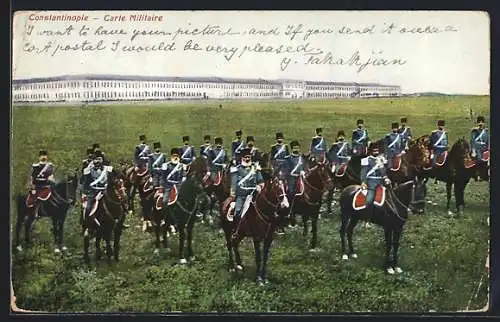 Constantinople – Carte Militaire
I want to have your picture, and If you send it over a
a postal I would be very pleased.
y. Takakjian